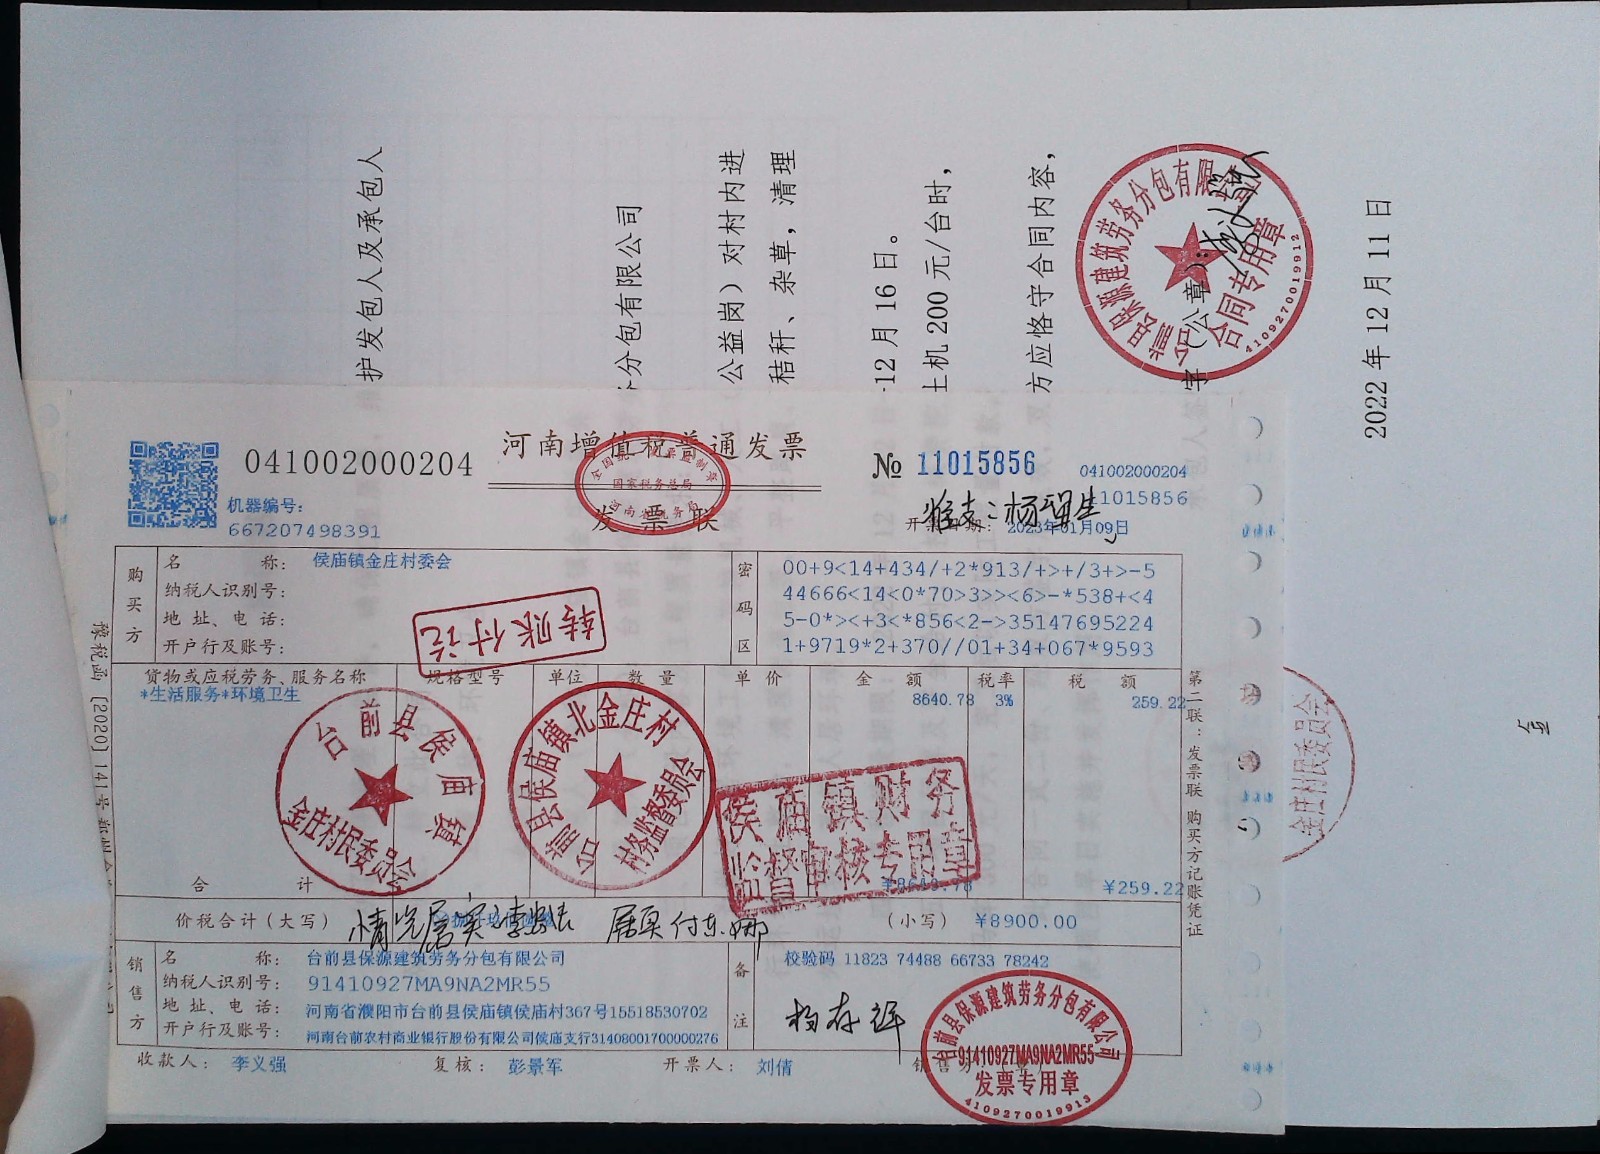 护发包人及承包人
分包有限公司
公益岗）对村内进
秸秆、杂草，清理
12月16日。
土机200元/台时，
方应恪守合同内容，
字（公章）：
保源建筑劳务分包有限
合同专用章
4109270019912
2022年12月11日
河南增值税普通发票
发票联
国家税务总局
河南省税务局
041002000204
№ 11015856
041002000204
11015856
机器编号：
667207498391
开票日期：2023年01月09日
购买方
名称：侯庙镇金庄村委会
纳税人识别号：
地址、电话：
开户行及账号：
密码区
00+9<14+434/+2*913/+>+/3+>-5
44666<14<0*70>3>><6>-*538+<4
5-0*><+3<*856<2->35147695224
1+9719*2+370//01+34+067*9593
转账付讫
货物或应税劳务、服务名称 规格型号 单位 数量 单价 金额 税率 税额
*生活服务*环境卫生 8640.78 3% 259.22
台前县侯庙镇
金庄村民委员会
台前县侯庙镇北金庄村
村务监督委员会
侯庙镇财务
监督审核专用章
合计 ¥8640.78 ¥259.22
价税合计（大写） （小写） ¥8900.00
情况属实 属实 付东娜
销售方
名称：台前县保源建筑劳务分包有限公司
纳税人识别号：91410927MA9NA2MR55
地址、电话：河南省濮阳市台前县侯庙镇侯庙村367号15518530702
开户行及账号：河南台前农村商业银行股份有限公司侯庙支行31408001700000276
备注
校验码 11823 74488 66733 78242
收款人：李义强 复核：彭景军 开票人：刘倩
台前县保源建筑劳务分包有限公司
91410927MA9NA2MR55
发票专用章
4109270019913
第二联：发票联 购买方记账凭证
豫税函〔2020〕141号
金庄村民委员会